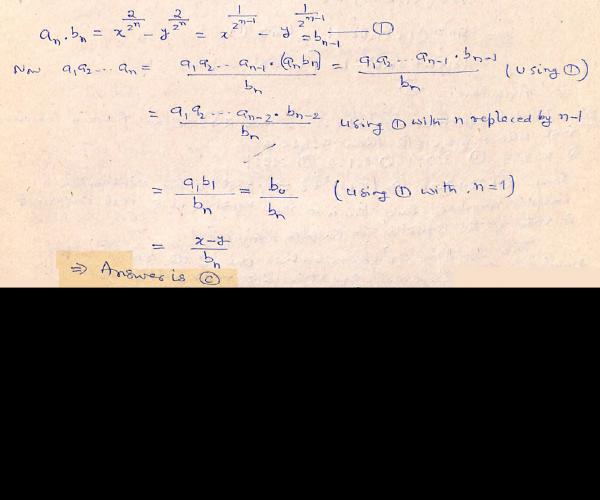 aₙ·bₙ = x^(2/2ⁿ) − y^(2/2ⁿ) = x^(1/2ⁿ⁻¹) − y^(1/2ⁿ⁻¹) = bₙ₋₁ —— ①
Now a₁a₂...aₙ = a₁a₂...aₙ₋₁·(aₙbₙ)/bₙ = a₁a₂...aₙ₋₁·bₙ₋₁/bₙ (using ①)
= a₁a₂...aₙ₋₂·bₙ₋₂/bₙ using ① with n replaced by n−1
= a₁b₁/bₙ = b₀/bₙ (using ① with n=1)
= x−y/bₙ
⇒ Answer is ⓒ